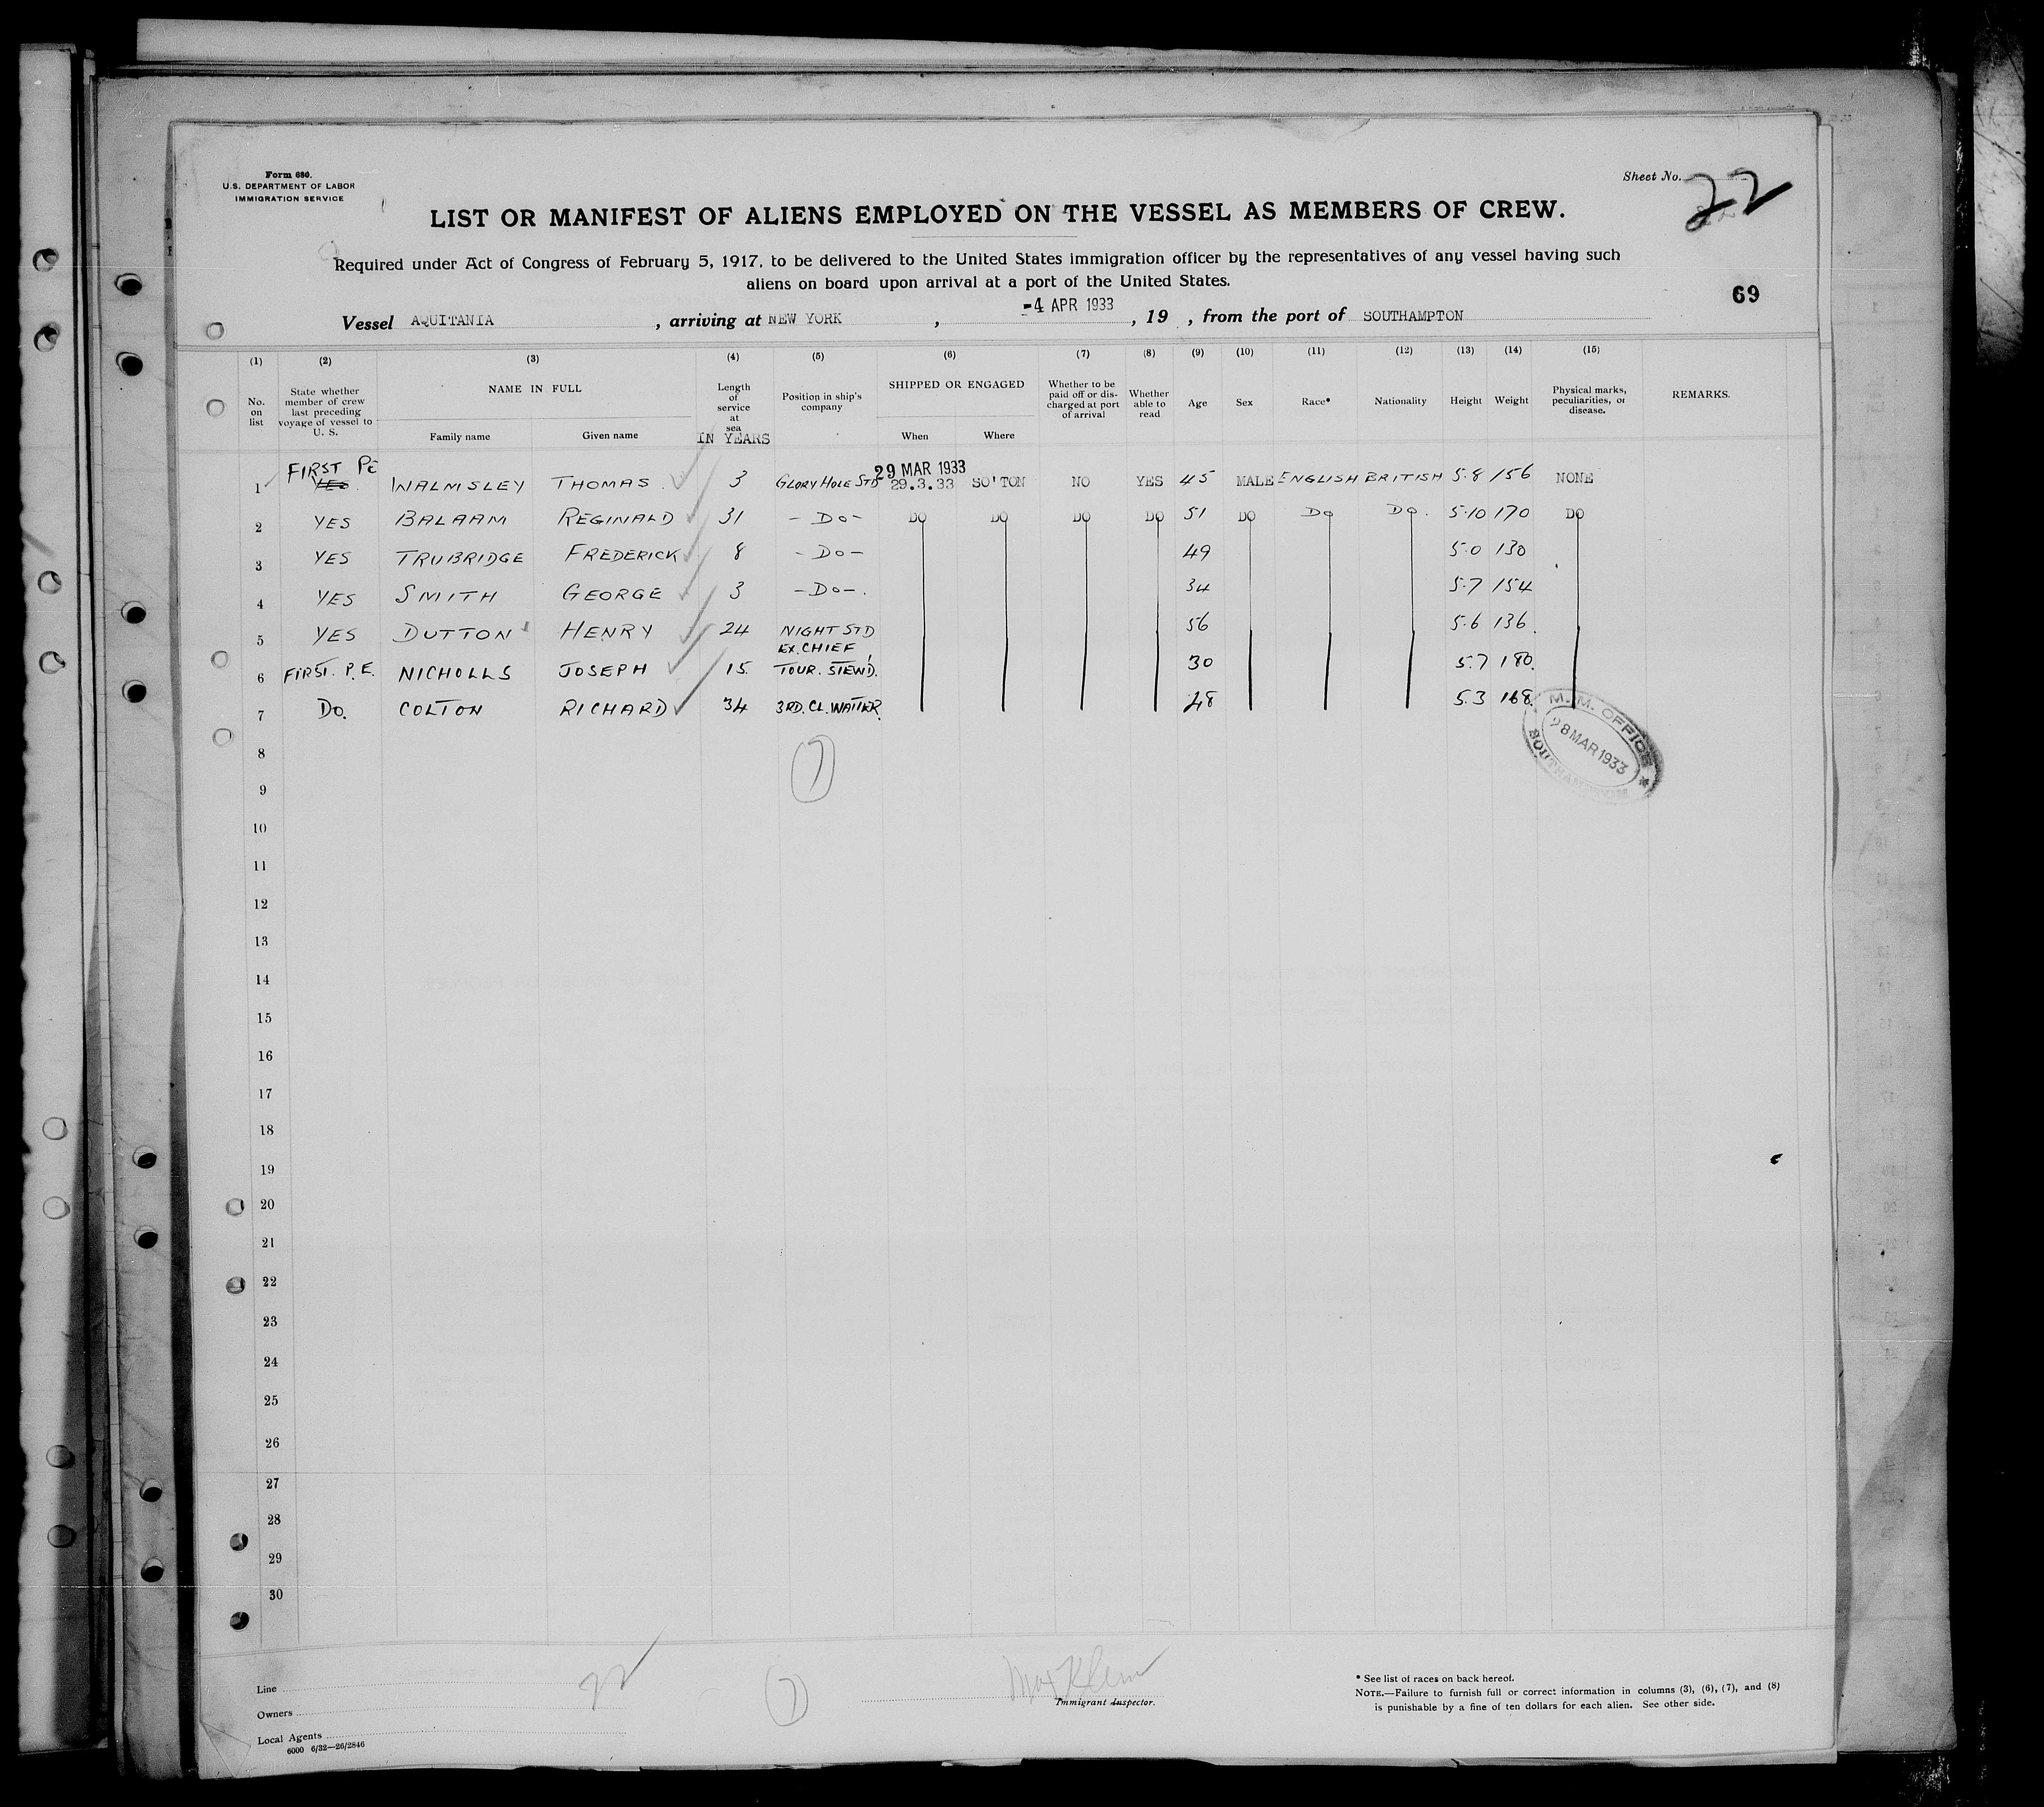 Form 680.
U.S. DEPARTMENT OF LABOR
IMMIGRATION SERVICE
Sheet No. 22
LIST OR MANIFEST OF ALIENS EMPLOYED ON THE VESSEL AS MEMBERS OF CREW.
Required under Act of Congress of February 5, 1917, to be delivered to the United States immigration officer by the representatives of any vessel having such
aliens on board upon arrival at a port of the United States.
69
Vessel AQUITANIA, arriving at NEW YORK, -4 APR 1933, 19 , from the port of SOUTHAMPTON
(1) (2) (3) (4) (5) (6) (7) (8) (9) (10) (11) (12) (13) (14) (15)
No. on list
State whether member of crew last preceding voyage of vessel to U. S.
NAME IN FULL
Family name
Given name
Length of service at sea
IN YEARS
Position in ship's company
SHIPPED OR ENGAGED
When
Where
Whether to be paid off or discharged at port of arrival
Whether able to read
Age
Sex
Race*
Nationality
Height
Weight
Physical marks, peculiarities, or disease.
REMARKS.
29 MAR 1933
1 FIRST PE YES WALMSLEY THOMAS 3 GLORY HOLE STD 29.3.33 SO'TON NO YES 45 MALE ENGLISH BRITISH 5.8 156 NONE
2 YES BALAAM REGINALD 31 -DO- DO DO DO DO 51 DO DO DO. 5.10 170 DO
3 YES TRUBRIDGE FREDERICK 8 -DO- 49 5.0 130
4 YES SMITH GEORGE 3 -DO-. 34 5.7 154
5 YES DUTTON HENRY 24 NIGHT STD 56 5.6 136
6 FIRST. P.E. NICHOLLS JOSEPH 15 EX.CHIEF TOUR. STEWD. 30 5.7 180.
7 DO. COLTON RICHARD 34 3RD. CL. WAITER. 48 5.3 168.
M.M. OFFICE
28 MAR 1933
SOUTHAMPTON
8
7
9
10
11
12
13
14
15
16
17
18
19
20
21
22
23
24
25
26
27
28
29
30
Line
Owners
Local Agents
6000 6/32—26/2846
22
7
Max Klein
Immigrant Inspector.
* See list of races on back hereof.
NOTE.—Failure to furnish full or correct information in columns (3), (6), (7), and (8)
is punishable by a fine of ten dollars for each alien. See other side.